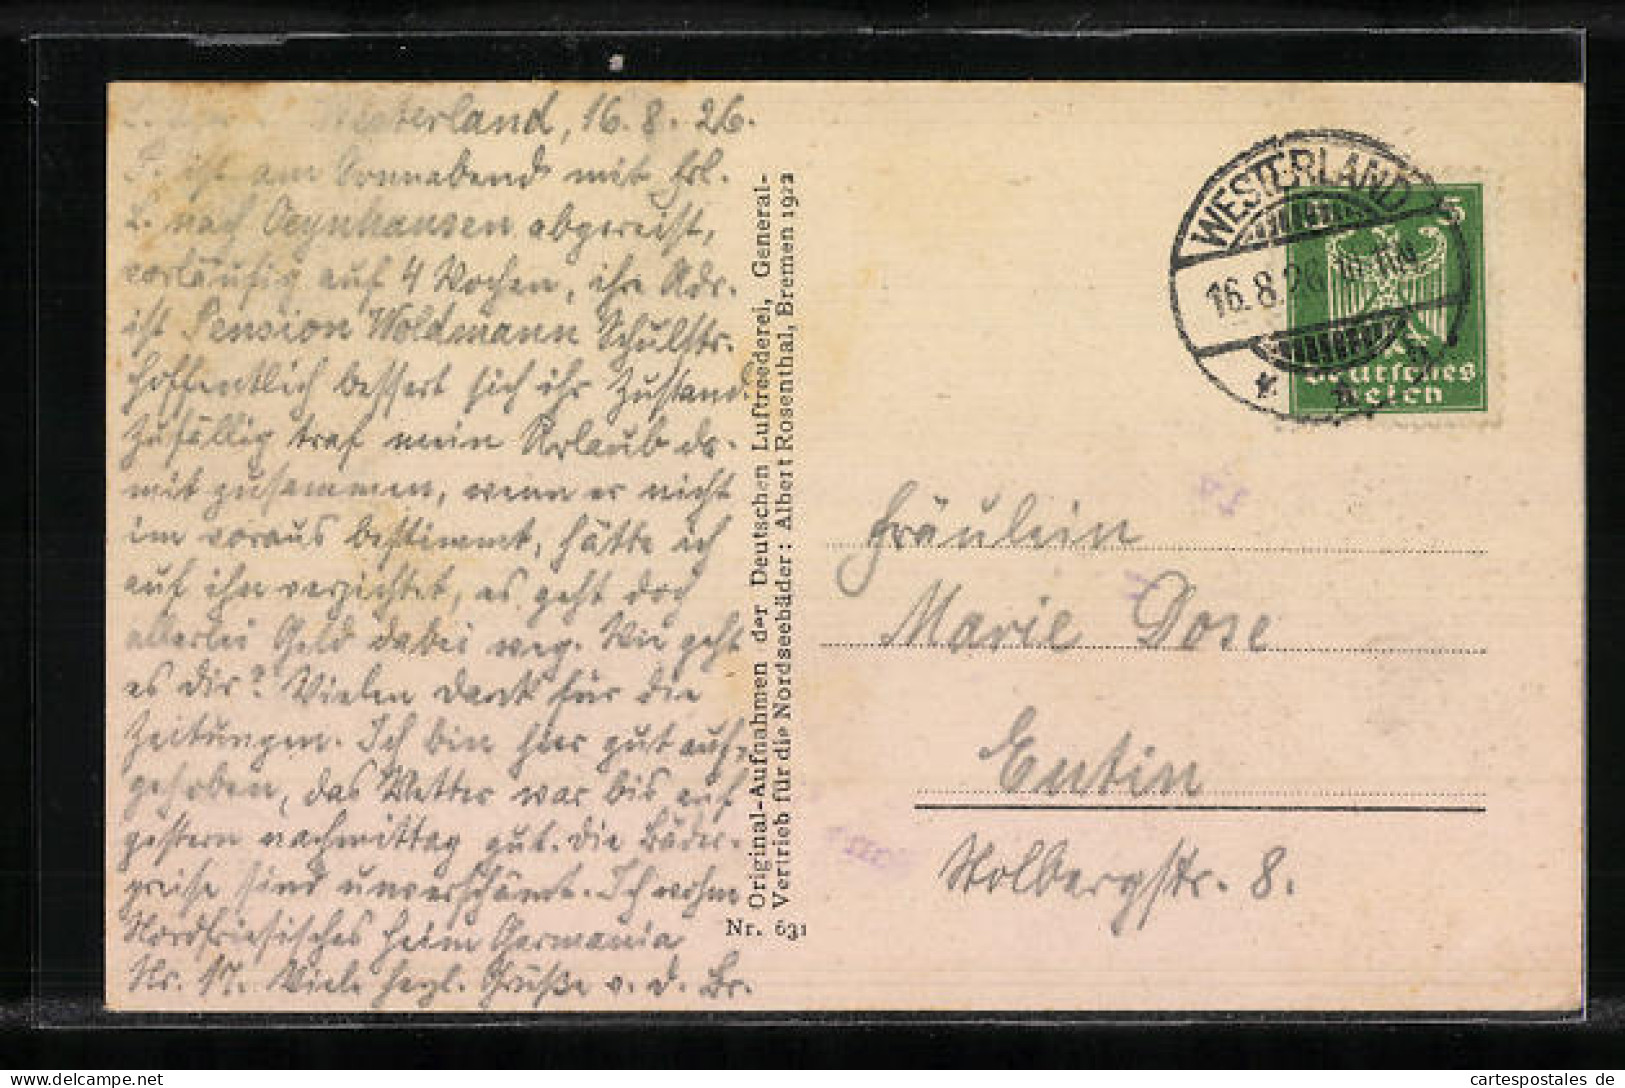 Westerland, 16.8.26.
F. ist am Sonnabend mit Frl.
L. nach Oeynhausen abgereist,
vorläufig auf 4 Wochen, ihr Adr.
ist Pension Woldmann Schulstr.
Hoffentlich bessert sich ihr Zustand.
Zufällig traf mein Urlaub da-
mit zusammen, wenn er nicht
im voraus bestimmt, hätte ich
auf ihn verzichtet, es geht doch
allerlei Geld dabei weg. Wie geht
es dir? Vielen Dank für die
Zeitungen. Ich bin hier gut auf-
gehoben, das Wetter war bis auf
gestern nachmittag gut. Die Bäder-
preise sind unverschämt. Ich wohne
Nordfriesisches Heim Germania
Nr. 17. Viele herzl. Grüße v. d. Br.
Original-Aufnahmen der Deutschen Luftreederei, General-
Vertrieb für die Nordseebäder: Albert Rosenthal, Bremen 1922
Nr. 631
WESTERLAND
16.8.26
5
Deutsches
Reich
Fräulein
Marie Dose
Eutin
Stolbergstr. 8.
cartespostales de